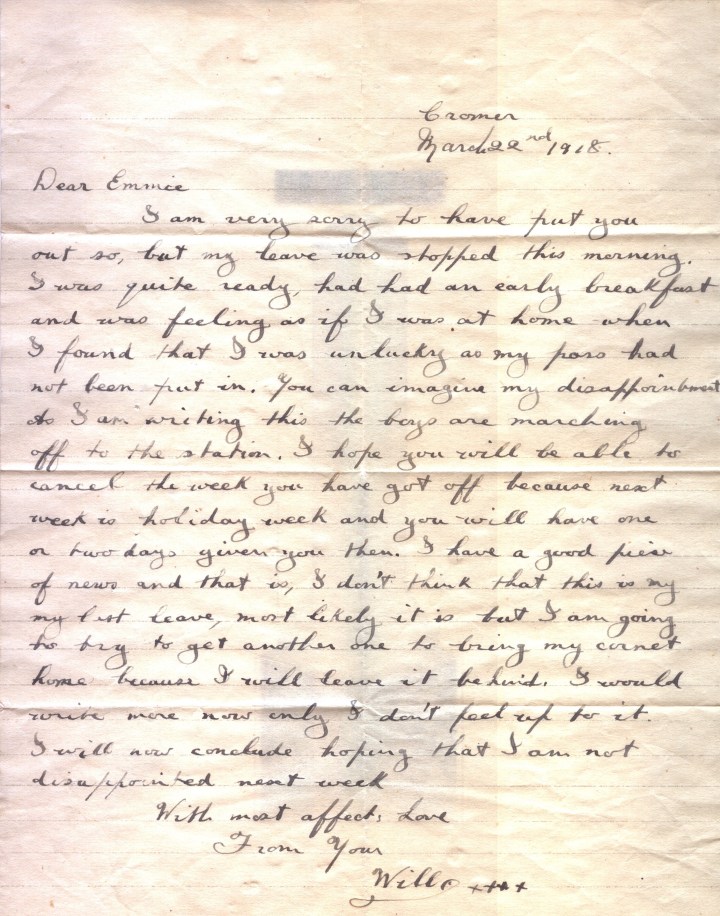 Cromer
March 22nd 1918.
Dear Emmie
I am very sorry to have put you
out so, but my leave was stopped this morning.
I was quite ready, had had an early breakfast
and was feeling as if I was at home when
I found that I was unlucky as my pass had
not been put in. You can imagine my disappointment
As I am writing this the boys are marching
off to the station. I hope you will be able to
cancel the week you have got off because next
week is holiday week and you will have one
or two days given you then. I have a good piece
of news and that is, I don't think that this is my
my last leave, most likely it is but I am going
to try to get another one to bring my cornet
home because I will leave it behind. I would
write more now only I don't feel up to it.
I will now conclude hoping that I am not
disappointed next week
With most affect: Love
From Your
Will ++++